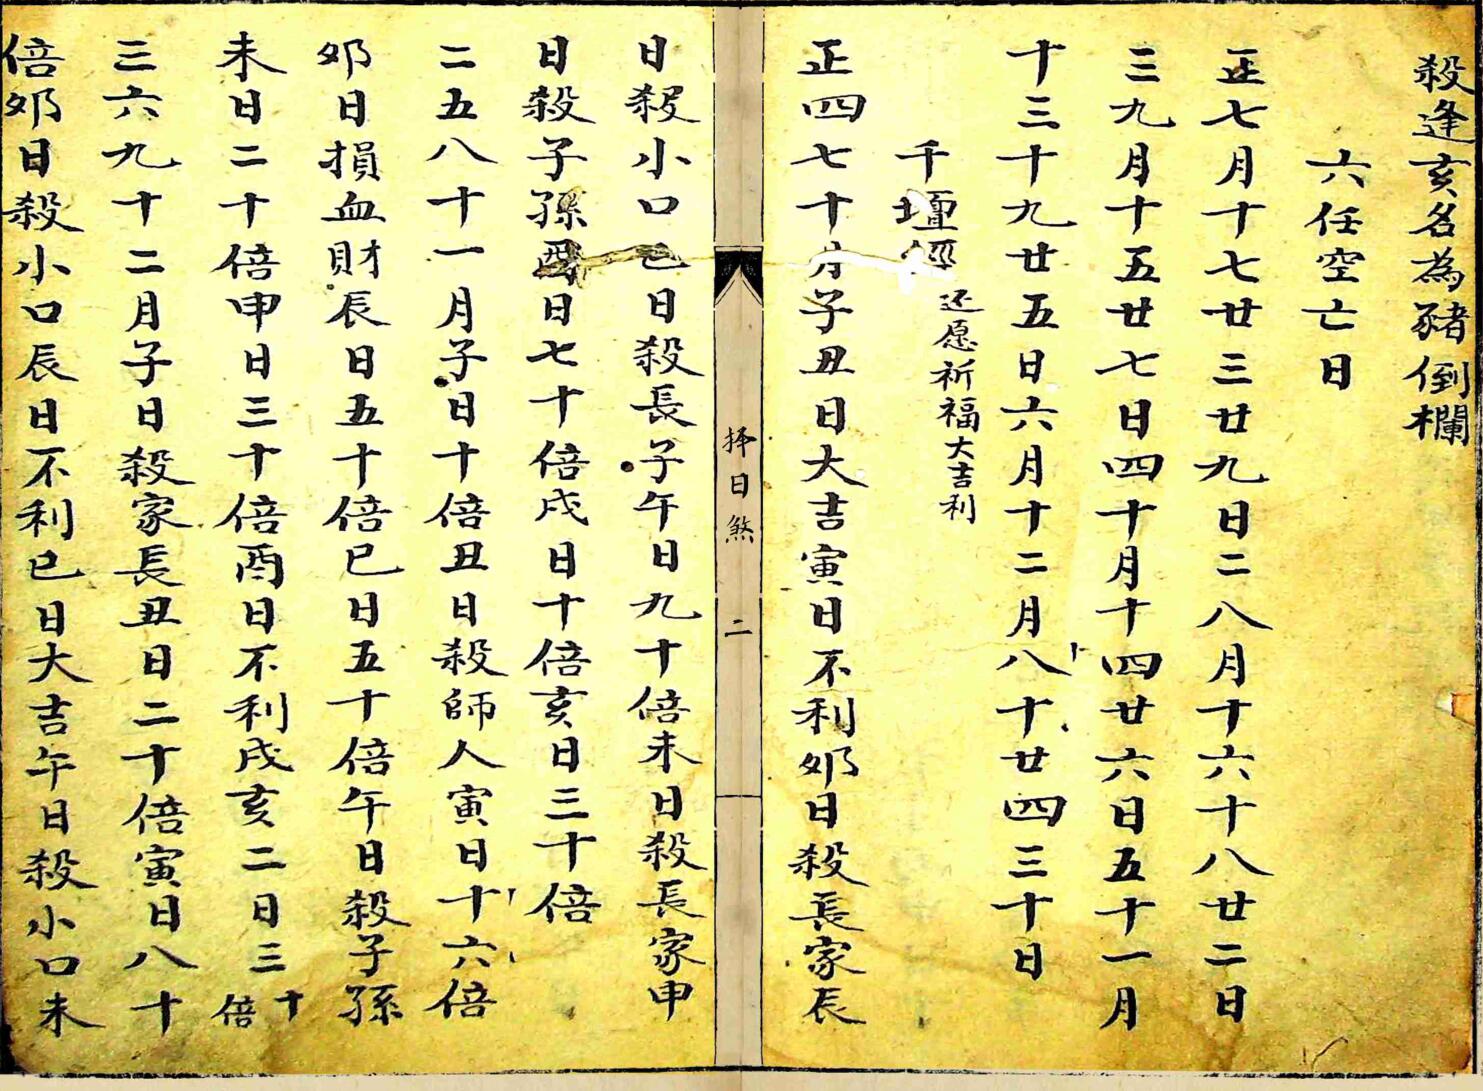 殺逢亥名為豬倒欄
六任空亡日
正七月十七廿三廿九日二八月十六十八廿二日
三九月十五廿七日四十月十四廿六日五十一月
十三十九廿五日六月十二月八十廿四三十日
千壇經 还愿祈福大吉利
正四七十月子丑日大吉寅日不利夘日殺長家辰
择日煞 二
日殺小口巳日殺長子午日九十倍未日殺長家申
日殺子孫酉日七十倍戌日十倍亥日三十倍
二五八十一月子日十倍丑日殺師人寅日十六倍
夘日損血財辰日五十倍巳日五十倍午日殺子孫
未日二十倍申日三十倍酉日不利戌亥二日三十倍
三六九十二月子日殺家長丑日二十倍寅日八十
倍夘日殺小口辰日不利巳日大吉午日殺小口未